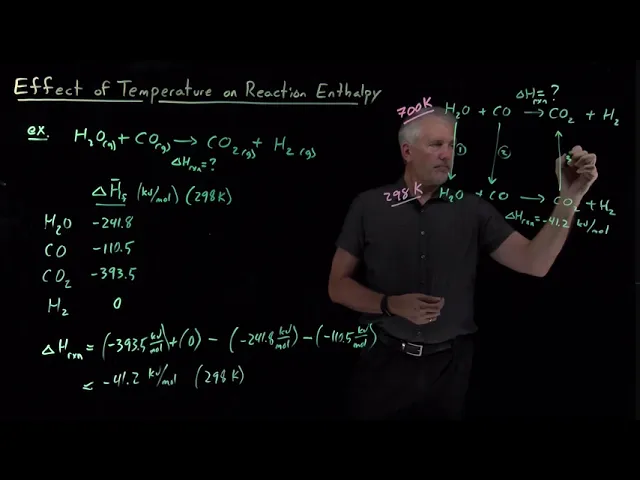 Effect of Temperature on Reaction Enthalpy
ex. H₂O(g) + CO(g) → CO₂(g) + H₂(g)
ΔHrxn = ?
ΔH̄f (kJ/mol) (298K)
H₂O -241.8
CO -110.5
CO₂ -393.5
H₂ 0
ΔHrxn = (-393.5 kJ/mol) + (0) - (-241.8 kJ/mol) - (-110.5 kJ/mol)
= -41.2 kJ/mol (298K)
ΔHrxn = ?
700K H₂O + CO → CO₂ + H₂
① ②
298K H₂O + CO → CO₂ + H₂
ΔHrxn = -41.2 kJ/mol